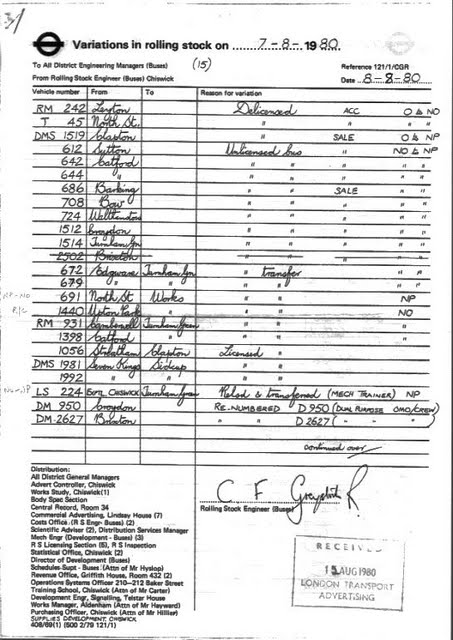 Variations in rolling stock on 7-8-1980
To All District Engineering Managers (Buses) (15) Reference 121/1/CGR
From Rolling Stock Engineer (Buses) Chiswick Date 8-8-80
Vehicle number From To Reason for variation
RM 242 Leyton Delicensed ACC O & NO
T 45 North St. " " " "
DMS 1519 Clapton " SALE O & NP
612 Sutton Unlicensed bus NO & NP
642 Catford " " " " "
644 " " " " " "
686 Barking " " SALE " "
708 Bow " " " " "
724 Walthamstow " " " " "
1512 Croydon " " " " "
1514 Turnham Gn " " " " "
2502 Brixton " " " " "
672 Edgware Turnham Gn " transfer " "
679 " " " " " "
691 North St Works " " NP
1440 Upton Park " " " NO
RM 931 Camberwell Turnham Green " "
1398 Catford " " "
1056 Streatham Clapton Licensed "
DMS 1981 Seven Kings Sidcup " "
1992 " " " "
LS 224 Chiswick Turnham Green & transferred (MECH TRAINER) NP
DM 950 Croydon RE-NUMBERED D 950 (DUAL PURPOSE OMO/CREW)
DM 2627 Brixton " " D 2627 ( " " )
continued over
Distribution:
All District General Managers
Advert Controller, Chiswick
Works Study, Chiswick(1)
Body Spec Section
Central Record, Room 34
Commercial Advertising, Lindsay House (7)
Costs Office (R S Engr- Buses) (2)
Scientific Adviser (2), Distribution Services Manager
Mech Engr (Development - Buses) (3)
R S Licensing Section (5), R S Inspection
Statistical Office, Chiswick (2)
Director of Development (Buses)
Schedules-Supt - Buses (Attn of Mr Hyslop)
Revenue Office, Griffith House, Room 432 (2)
Operations Systems Officer 210-212 Baker Street
Training School, Chiswick (Attn of Mr Carter)
Development Engr, Signalling, Telstar House
Works Manager, Aldenham (Attn of Mr Hayward)
Purchasing Officer Chiswick (Attn of Mr Hillier)
SUPPLIES DEVELOPMENT, CHISWICK
408/69(1) (500 2/79 121/1)
C F
Rolling Stock Engineer (Buses)
RECEIVED
15 AUG 1980
LONDON TRANSPORT
ADVERTISING